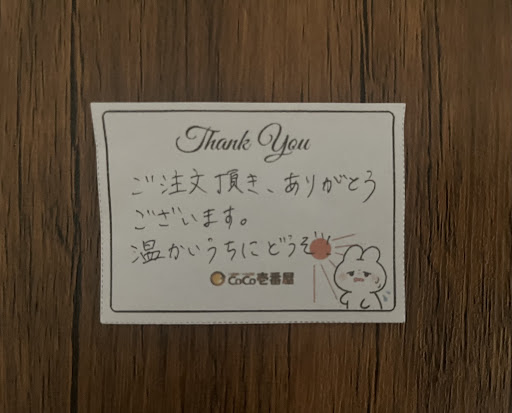 Thank You
ご注文頂き、ありがとう
ございます。
温かいうちにどうぞ
CoCo壱番屋